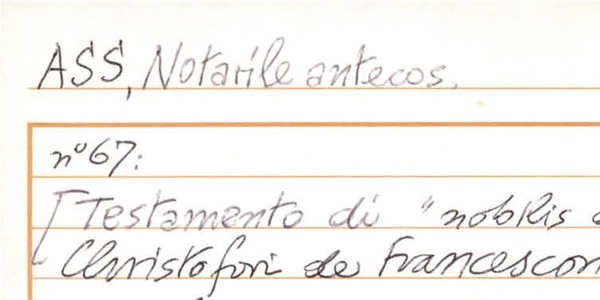 ASS, Notarile antecos.
nº 67:
[Testamento di "nobilis
Christofori de Francescon